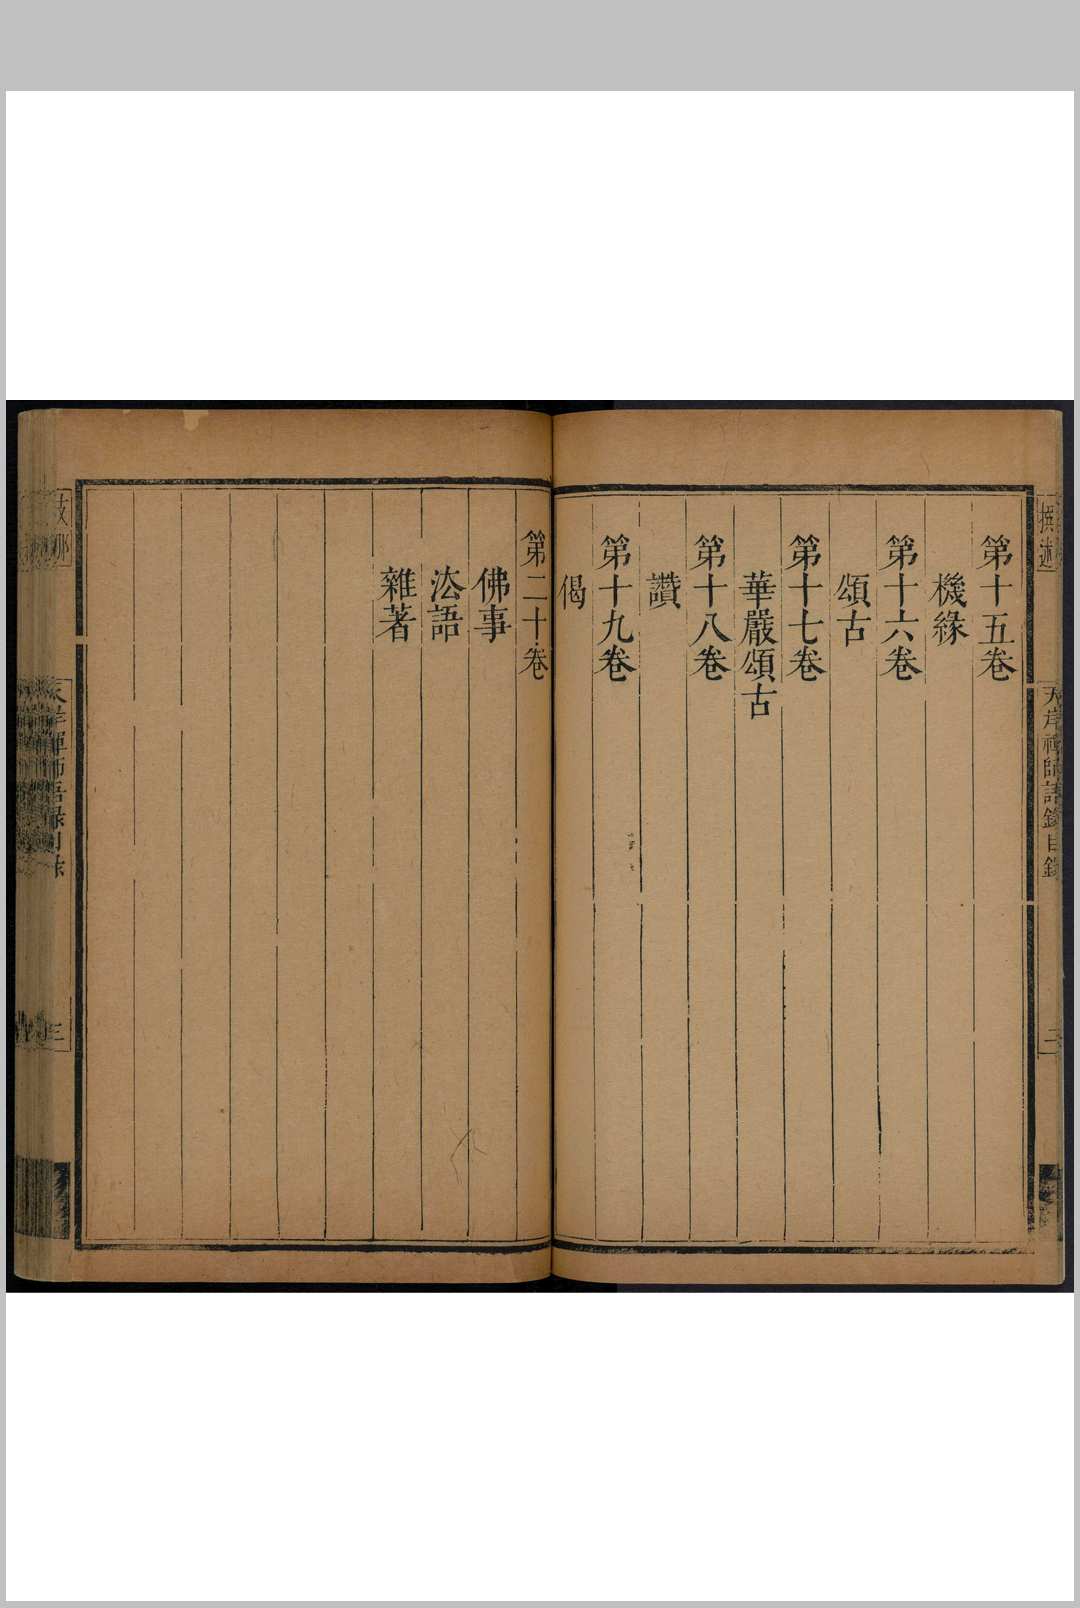 撰述
天岸禪師語錄目錄
第十五卷
機緣
第十六卷
頌古
第十七卷
華嚴頌古
第十八卷
讚
第十九卷
偈
第二十卷
佛事
法語
雜著
三